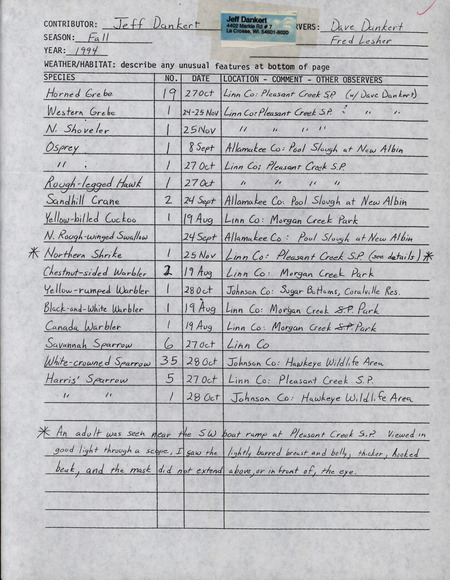 CONTRIBUTOR: Jeff Dankert
Jeff Dankert
4402 Markle Rd # 7
La Crosse, WI. 54601-8020
VERS: Dave Dankert
SEASON: Fall
Fred Lesher
YEAR: 1994
WEATHER/HABITAT: describe any unusual features at bottom of page
SPECIES NO. DATE LOCATION - COMMENT - OTHER OBSERVERS
Horned Grebe 19 27 Oct Linn Co: Pleasant Creek S.P. (w/ Dave Dankert)
Western Grebe 1 24-25 Nov Linn Co: Pleasant Creek S.P. " " "
N. Shoveler 1 25 Nov " " " "
Osprey 1 8 Sept Allamakee Co: Pool Slough at New Albin
" " 1 27 Oct Linn Co: Pleasant Creek S.P.
Rough-legged Hawk 1 27 Oct " " " "
Sandhill Crane 2 24 Sept Allamakee Co: Pool Slough at New Albin
Yellow-billed Cuckoo 1 19 Aug Linn Co: Morgan Creek Park
N. Rough-winged Swallow 24 Sept Allamakee Co: Pool Slough at New Albin
* Northern Shrike 1 25 Nov Linn Co: Pleasant Creek S.P. (see details) *
Chestnut-sided Warbler 2 19 Aug Linn Co: Morgan Creek Park
Yellow-rumped Warbler 1 28 Oct Johnson Co: Sugar Bottoms, Coralville Res.
Black-and-White Warbler 1 19 Aug Linn Co: Morgan Creek S.P. Park
Canada Warbler 1 19 Aug Linn Co: Morgan Creek S.P. Park
Savannah Sparrow 6 27 Oct Linn Co
White-crowned Sparrow 35 28 Oct Johnson Co: Hawkeye Wildlife Area
Harris' Sparrow 5 27 Oct Linn Co: Pleasant Creek S.P.
" " 1 28 Oct Johnson Co: Hawkeye Wildlife Area
* An adult was seen near the SW boat ramp at Pleasant Creek S.P. Viewed in
good light through a scope, I saw the lightly barred breast and belly, thicker, hooked
beak, and the mask did not extend above, or in front of, the eye.